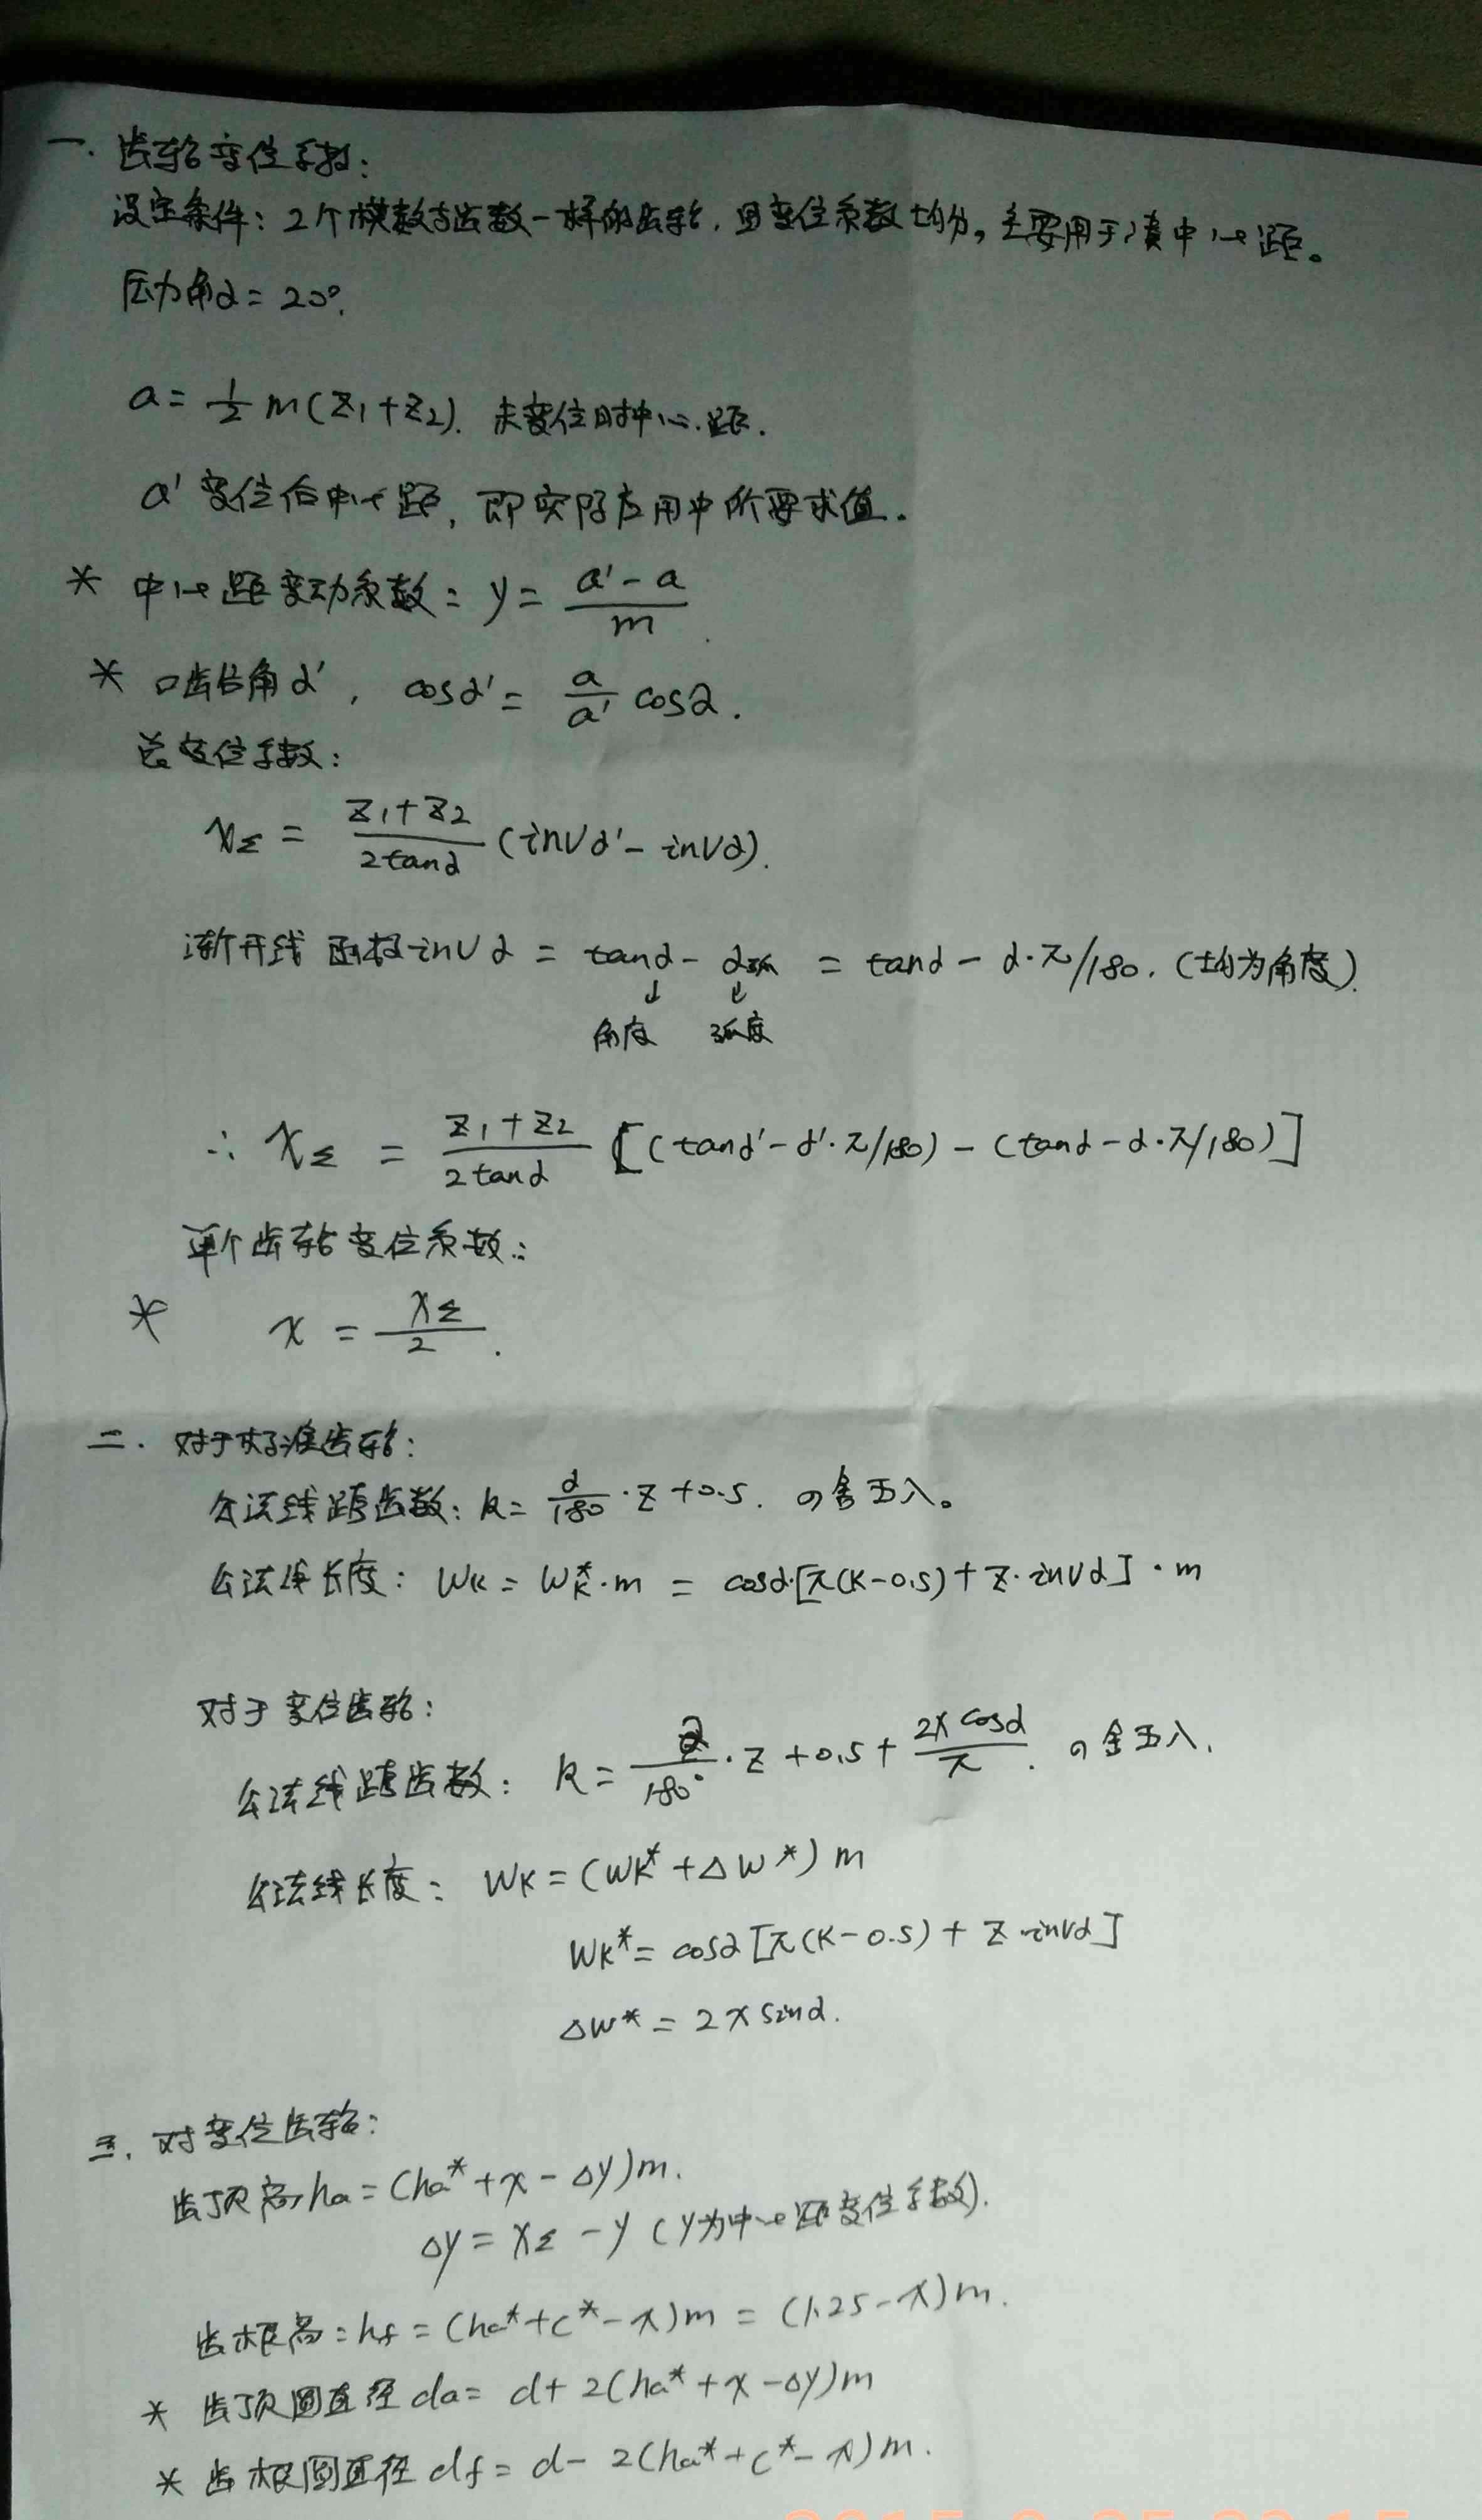 一. 齿轮变位系数:
设定条件: 2个模数与齿数一样的齿轮, 且变位系数均分。主要用于凑中心距。
压力角α= 20°.
a = 1/2 m(z₁+z₂). 未变位时中心距.
a' 变位后中心距, 即实际应用中所要求值.
* 中心距变动系数: y = (a'-a)/m.
* 啮合角α', cosα' = a/a' cosα.
总变位系数:
xΣ = (z₁+z₂)/(2tanα) (invα'-invα).
渐开线函数invα = tanα - α弧 = tanα - α·π/180. (均为角度).
↓ ↓
角度 弧度
∴ xΣ = (z₁+z₂)/(2tanα) [(tanα'-α'·π/180) - (tanα-α·π/180)]
单个齿轮变位系数:
* x = xΣ/2.
二. 对于标准齿轮:
公法线跨齿数: k= α/180·z+0.5. 四舍五入。
公法线长度: Wk = Wk*·m = cosα·[π(k-0.5)+z·invα]·m
对于变位齿轮:
公法线跨齿数: k= α/180°·z+0.5+ 2xcosα/π. 四舍五入.
公法线长度: Wk=(Wk*+△W*)m
Wk*= cosα[π(k-0.5)+z·invα]
△W* = 2xsinα.
三. 对变位齿轮:
齿顶高ha=(ha*+x-△y)m.
△y = xΣ - y (y为中心距变位系数).
齿根高: hf = (ha*+c*-x)m = (1.25-x)m.
* 齿顶圆直径da= d+2(ha*+x-△y)m
* 齿根圆直径df= d-2(ha*+c*-x)m.